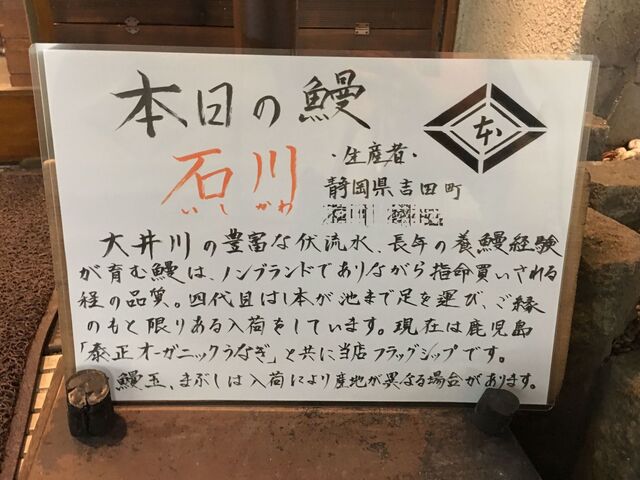 本日の鰻
本
石川
いしかわ
・生産者・
静岡県吉田町
大井川の豊富な伏流水、長年の養鰻経験
が育む鰻は、ノンブランドでありながら指命買いされる
程の品質。四代目はし本が池まで足を運び、ご縁
のもと限りある入荷をしています。現在は鹿児島
「泰正オーガニックうなぎ」と共に当店フラッグシップです。
鰻玉、まぶしは入荷により産地が異なる場合があります。